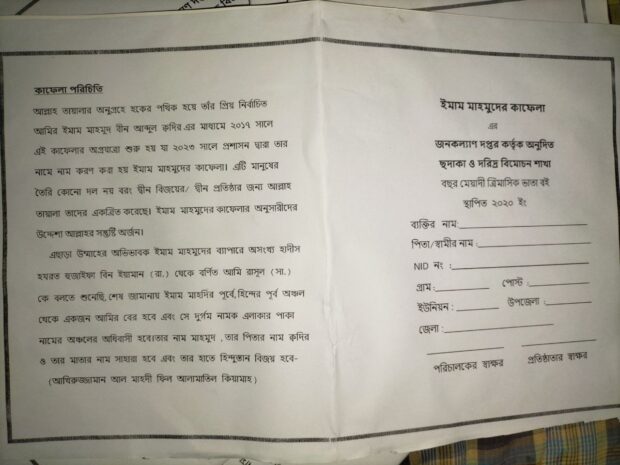 কাফেলা পরিচিতি
আল্লাহ তায়ালার অনুগ্রহে হকের পথিক হয়ে তাঁর প্রিয় নির্বাচিত
আমির ইমাম মাহমুদ দ্বীন আব্দুল ক্বদির এর মাধ্যমে ২০১৭ সালে
এই কাফেলার অগ্রযাত্রা শুরু হয় যা ২০২৩ সালে প্রশাসন দ্বারা তার
নামে নাম করণ করা হয় ইমাম মাহমুদের কাফেলা। এটি মানুষের
তৈরি কোনো দল নয় বরং দ্বীন বিজয়ের/ দ্বীন প্রতিষ্ঠার জন্য আল্লাহ
তায়ালা তাদের একত্রিত করেছে। ইমাম মাহমুদের কাফেলার অনুসারীদের
উদ্দেশ্য আল্লাহর সন্তুষ্টি অর্জন।
এছাড়া উম্মাহের অভিভাবক ইমাম মাহমুদের ব্যাপারে অসংখ্য হাদীস
হযরত হুজাইফা বিন ইয়ামান (রা.) থেকে বর্ণিত আমি রাসূল (সা.)
কে বলতে শুনেছি, শেষ জামানায় ইমাম মাহদির পূর্বে, হিন্দের পূর্ব অঞ্চল
থেকে একজন আমির বের হবে এবং সে দুর্গম নামক এলাকার পাকা
নামের অঞ্চলের অধিবাসী হবে।তার নাম মাহমুদ , তার পিতার নাম ক্বদির
ও তার মাতার নাম সাহারা হবে এবং তার হাতে হিন্দুস্তান বিজয় হবে-
(আখিরুজ্জামান আল মাহদী ফিল আলামাতিল কিয়ামাহ )
ইমাম মাহমুদের কাফেলা
এর
জনকল্যাণ দপ্তর কর্তৃক অনুদিত
ছদাকা ও দরিদ্র বিমোচন শাখা
বছর মেয়াদী ত্রিমাসিক ভাতা বই
স্থাপিত ২০২০ ইং
ব্যক্তির নাম:
পিতা/স্বামীর নাম :
NID নং :
গ্রাম: পোস্ট:
ইউনিয়ন : উপজেলা :
জেলা :
পরিচালকের স্বাক্ষর প্রতিষ্ঠাতার স্বাক্ষর